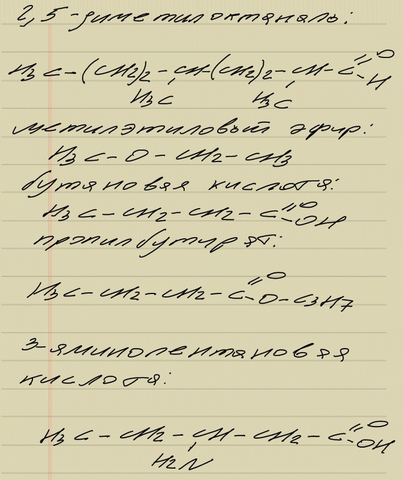 2,5-диметилоктаналь:
H3C-(CH2)2-CH-(CH2)2-CH-C=O-H
H3C H3C
метилэтиловый эфир:
H3C-O-CH2-CH3
бутановая кислота:
H3C-CH2-CH2-C=O-OH
пропилбутират:
H3C-CH2-CH2-C=O-O-C3H7
3-аминопентановая
кислота:
H3C-CH2-CH-CH2-C=O-OH
H2N